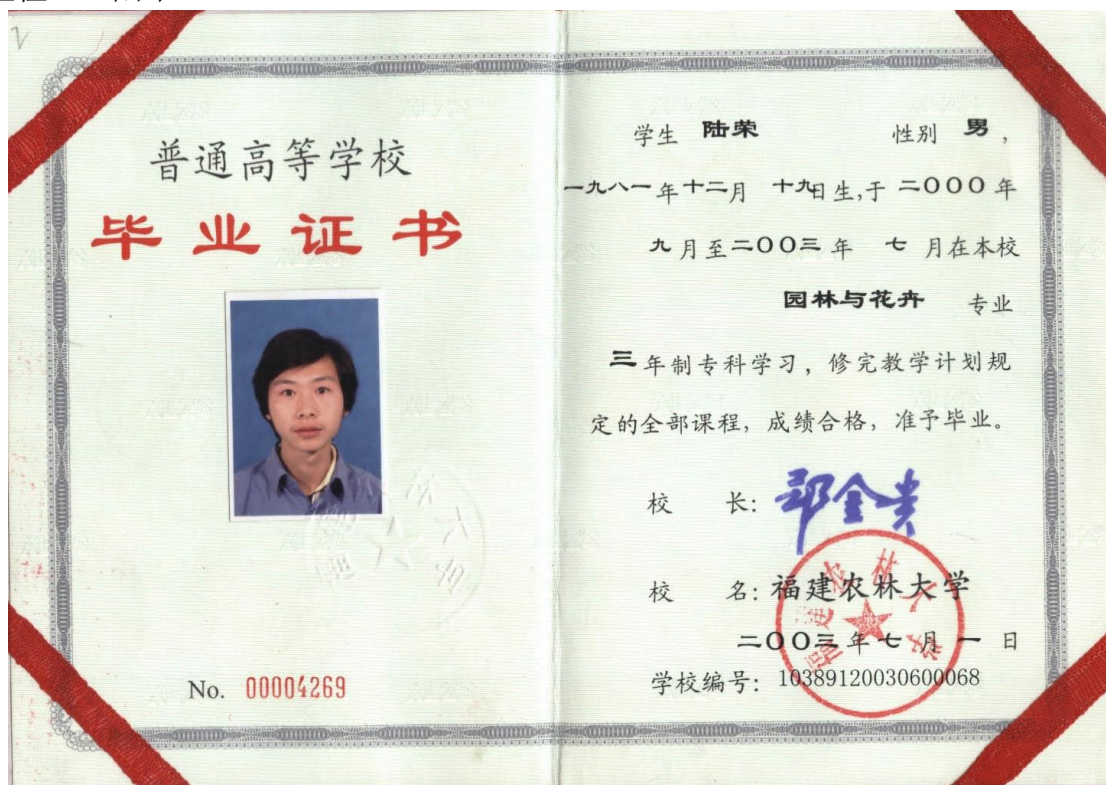 普通高等学校
毕业证书
No. 00004269
学生 陆荣 性别 男，
一九八一年十二月 十九日生,于 二000年
九月至二00三年 七月在本校
园林与花卉 专业
三年制专科学习，修完教学计划规
定的全部课程，成绩合格，准予毕业。
校 长:
校 名: 福建农林大学
福建农林大学
二00三年七月一日
学校编号: 10389120030600068